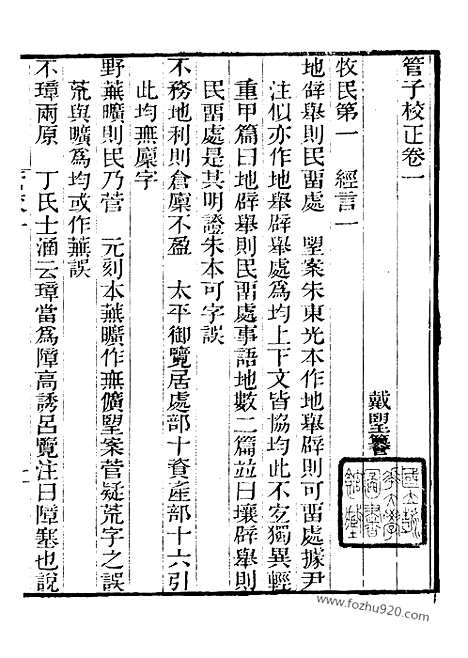 管子校正卷一
戴望
牧民第一　經言一
地辟舉則民畱處　朢案朱東光本作地舉辟則可畱處據尹
注似亦作地舉辟舉處為均上下文皆協均此不宐獨異輕
重甲篇曰地辟舉則民畱處事語地數二篇並曰壤辟舉則
民畱處是其明證朱本可字誤
不務地利則倉廩不盈　太平御覽居處部十資產部十六引
此均無廩字
野蕪曠則民乃菅　元刻本蕪曠作無儣朢案菅疑荒字之誤
荒與曠為均或作蕪誤
不璋兩原　丁氏士涵云璋當為障高誘呂覽注曰障塞也說
www.fozhu920.com